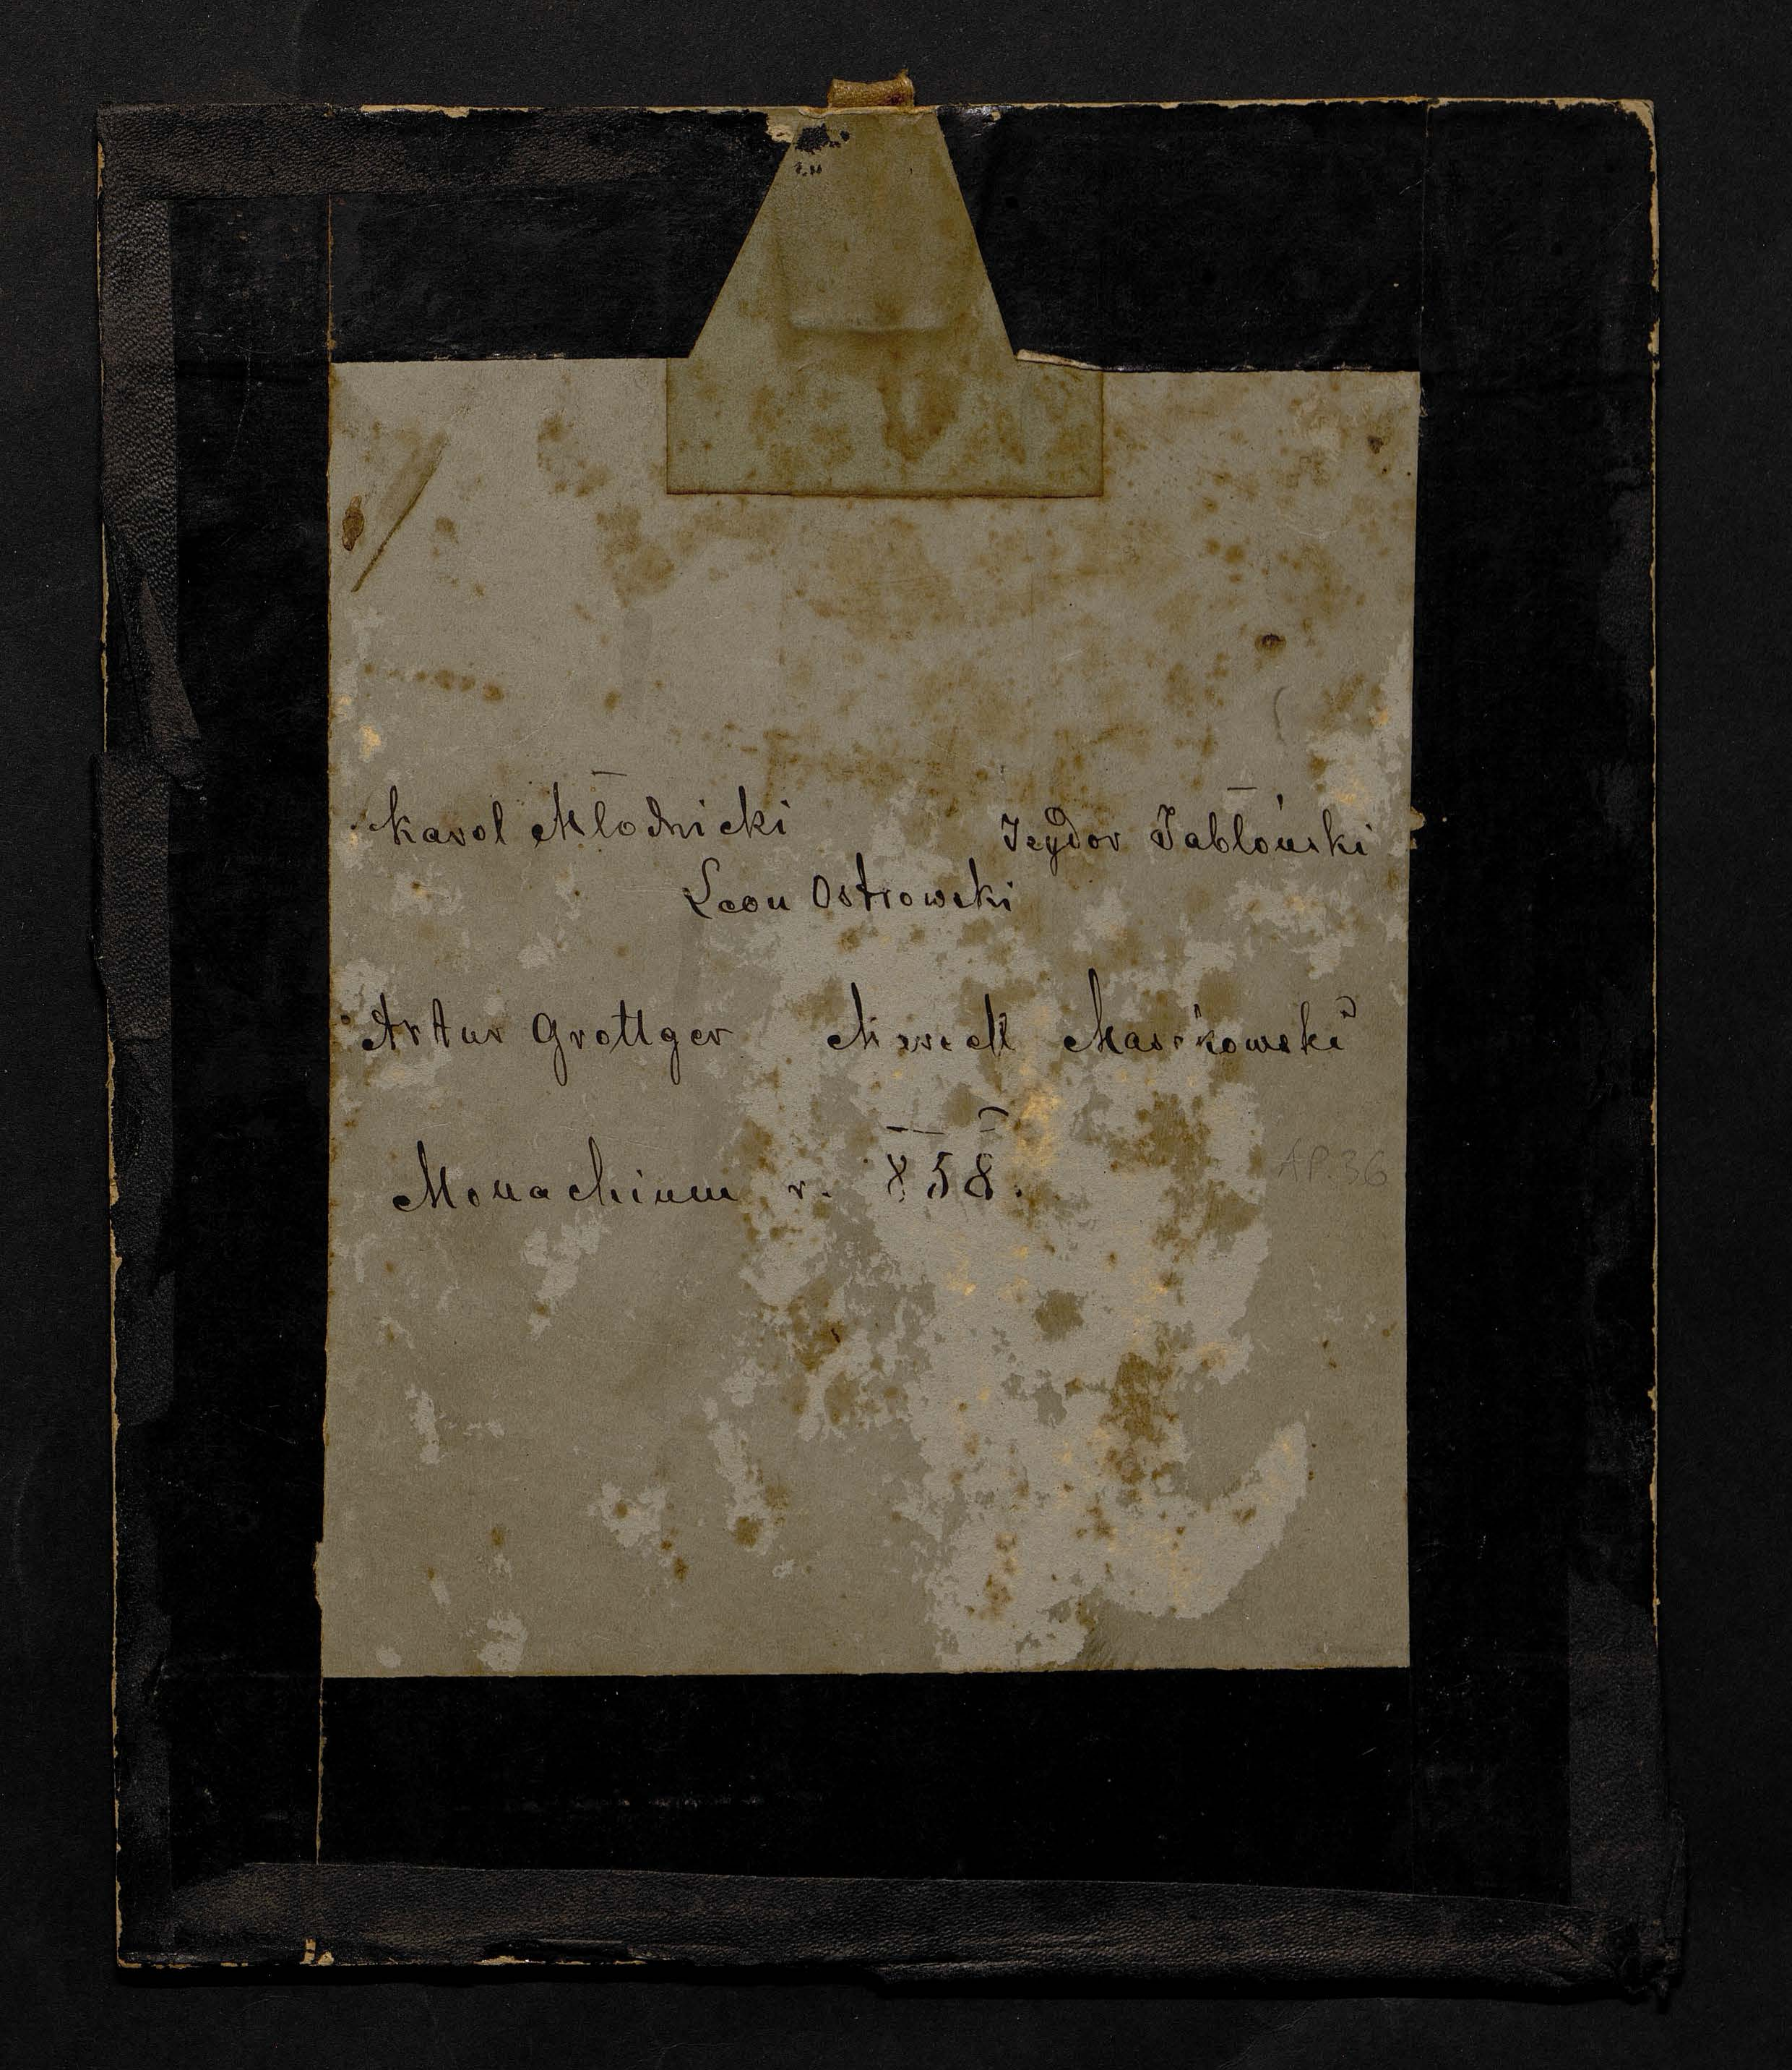 Karol Młodnicki Izydor Jabłoński
Leon Ostrowski
Artur Grottger Maszkowski
Monachium r. 858.
AP.36